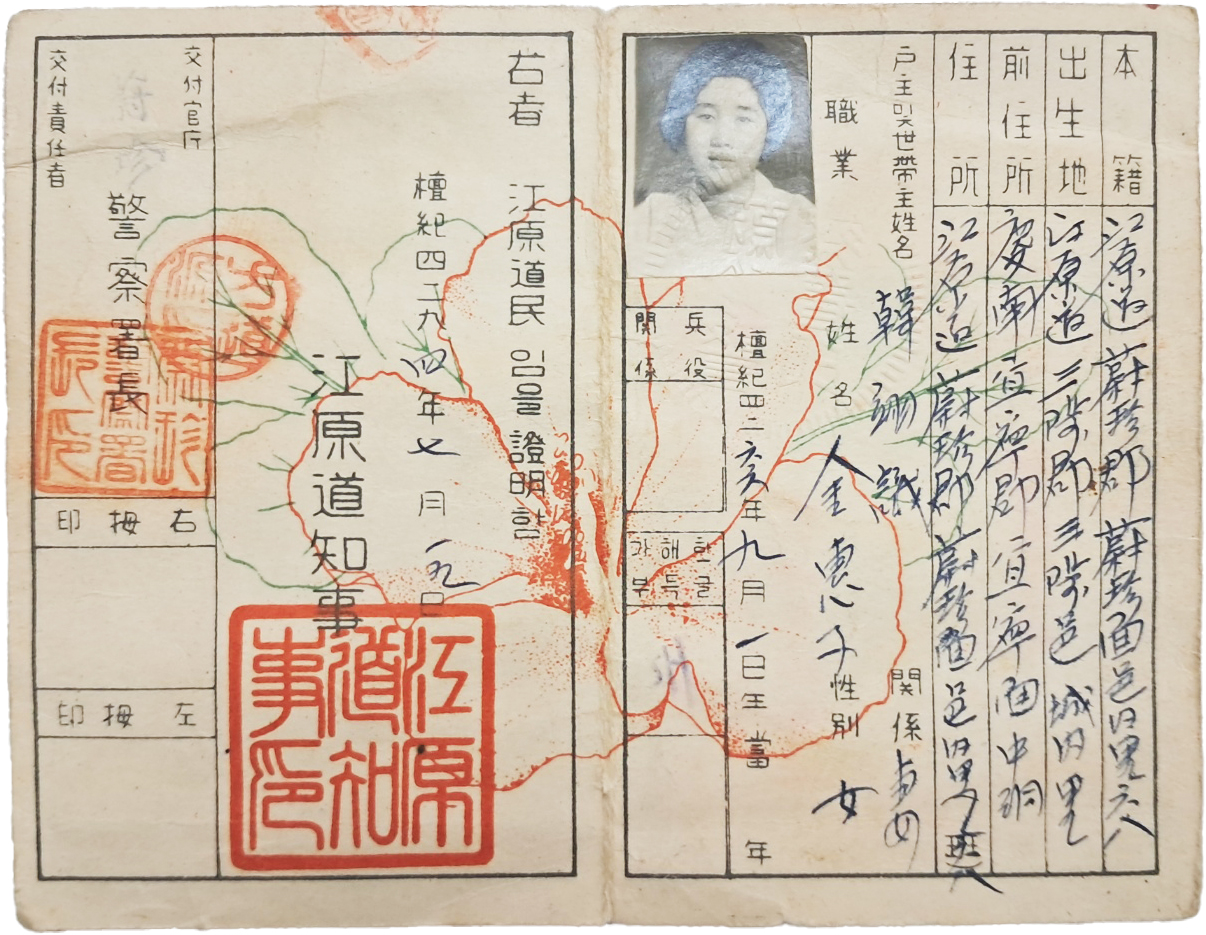 本籍 江原道 蔚珍郡 蔚珍面 邑内里 六八
出生地 江原道 三陟郡 三陟邑 城内里
前住所 慶南 宜寧郡 宜寧面 中洞
住所 江原道 蔚珍郡 蔚珍面 邑内里 班
戸主및世帶主姓名 韓
関係
職業
姓名 金惠子 性別 女
檀紀四二六年九月一日生 當 年
兵役
関係
한글
해득
가부
右者 江原道民 임을 證明함
檀紀四二九四年七月一九日
江原道知事
江原道知事印
交付官庁
警察署長
交付責任者
蔚珍
右拇印
左拇印